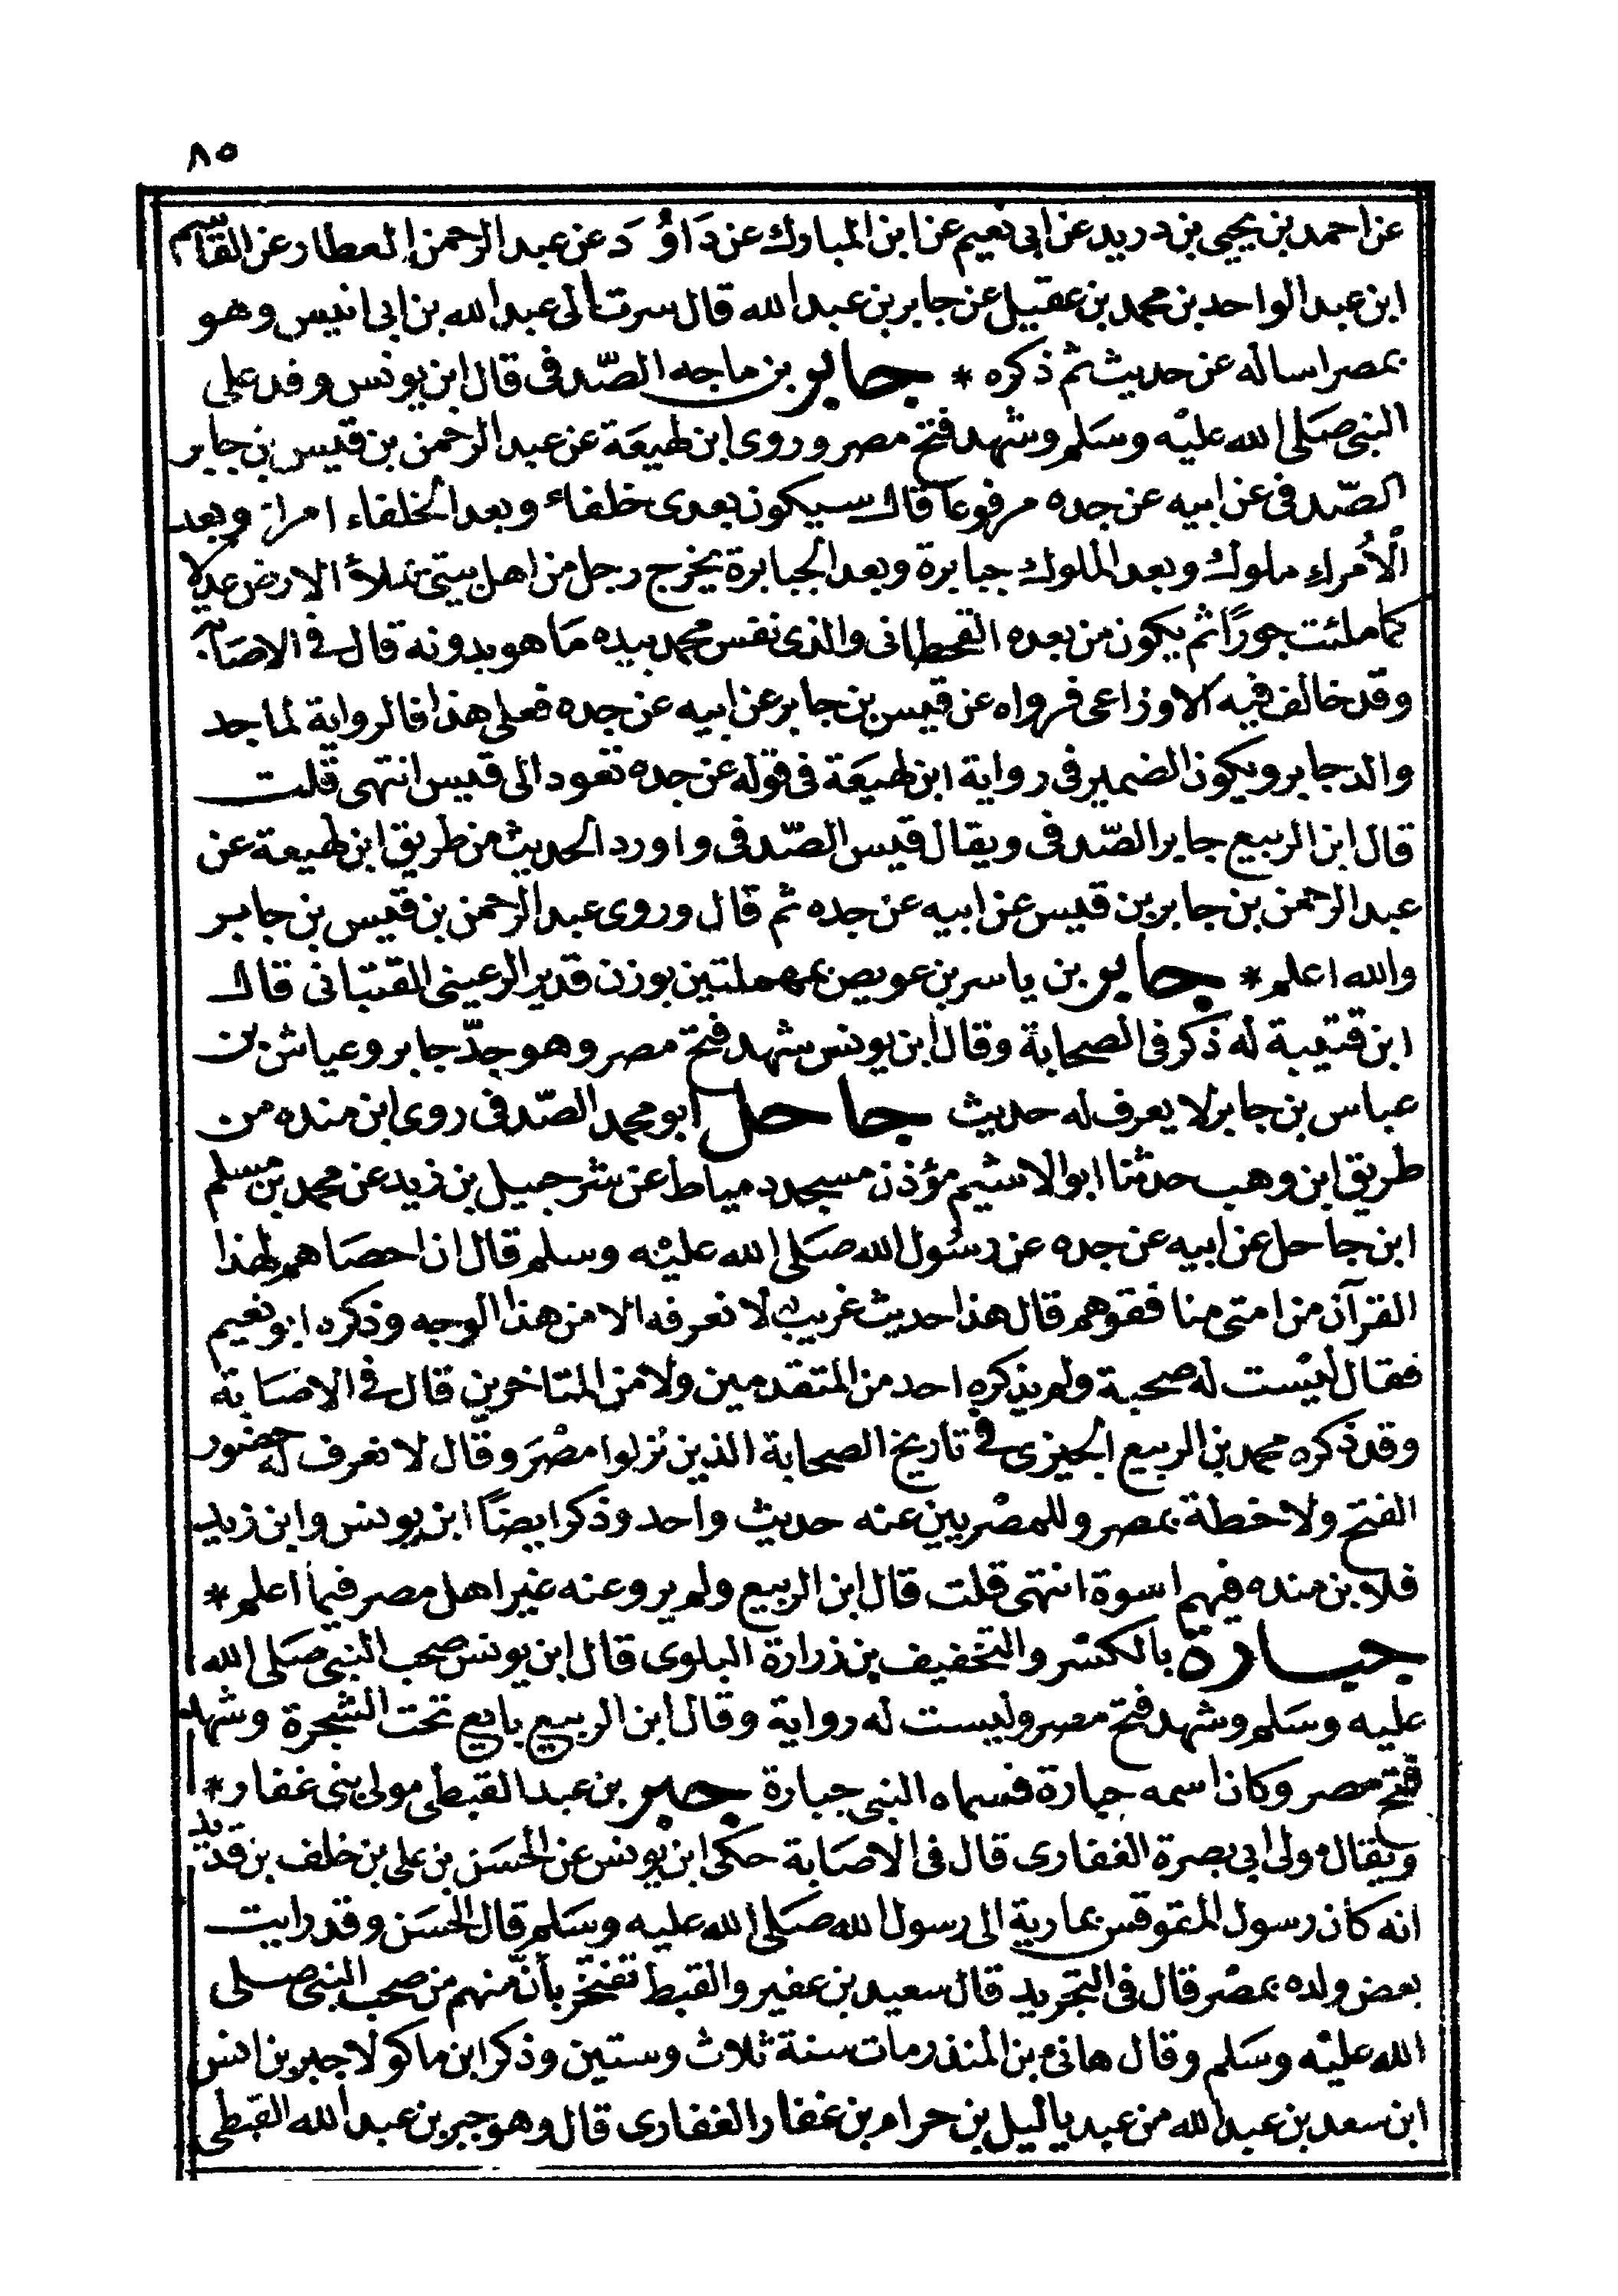 ٨٥
عن احمد بن يحيى بن دريد عن ابى نعيم عن ابن المبارك عن دَاوُد عن عبد الرحمن العطار عن القاسم
ابن عبد الواحد بن محمد بن عقيل عن جابر بن عبد الله قال سرت الى عبد الله بن ابى انيس وهو
بمصر اساله عن حديث ثم ذكره * جابر بن ماجه الصّدفى قال ابن يونس وفد على
النبى صَلى الله عليْه وسَلم وشهد فتح مصر وروى ابن لهيعَة عن عبد الرحمن بن قيس بن جابر
الصّدفى عن ابيه عن جده مرفوعاً قال سيكون بعدى خلفاء وبعد الخلفاء امراء وبعد
الْاُمراءِ ملوك وبعد الملوك جبابرة وبعد الجبابرة يخرج رجل من اهل بيتى يملأ الارض عدلا
كما ملئت جورًا ثم يكون من بعده القحطانى والذى نفس محمد بيده مَا هو بدونه قال فى الاصَابة
وقد خالف فيه الاوزاعى فرواه عن قيس بن جابر عن ابيه عن جده فعلى هذا فالرواية لماجد
والد جابر ويكون الضمير فى رواية ابن لهيعَة فى قوله عن جده تعود الى قيس انتهى قلت
قال ابن الربيع جابر الصّدفى ويقال قيس الصّدفى واورد الحديث من طريق ابن لهيعة عن
عبد الرحمن بن جابر بن قيس عن ابيه عن جده ثم قال وروى عبد الرحمن بن قيس بن جابر
والله اعلم * جابر بن ياسر بن عويص بمهملتين بوزن قدير الرعينى القتبانى قال
ابن قتيبة له ذكر فى الصحابة وقال ابن يونس شهد فتح مصر وهو جدّ جابر وعياش بن
عباس بن جابر لا يعرف له حديث جاحل ابو محمد الصّدفى روى ابن منده من
طريق ابن وهب حدثنا ابو الاشيم مؤذن مسجد دمياط عن شرحبيل بن زيد عن محمد بن مسلم
ابن جاحل عن ابيه عن جده عن رسُول الله صَلى الله عليْه وسلم قال ان احصَاهم لهذا
القرآن من امتى منافقوهم قال هذا حديث غريب لا نعرفه الا من هذا الوجه وذكره ابو نعيم
فقال ليْست له صحبة ولم يذكره احد من المتقدمين ولا من المتاخرين قال فى الاصَابة
وقد ذكره محمد بن الربيع الجيزى فى تاريخ الصحابة الذين نزلوا مصْرَ وقال لا نعرف له حضور
الفتح ولا خطة بمصر وللمصْريين عنه حديث واحد وذكر ايضًا ابن يونس وابن زبد
فلابن منده فيهم اسوة انتهى قلت قال ابن الربيع ولم يرو عنه غير اهل مصر فيما اعلم *
جبارة بالكسْر والتخفيف بن زرارة البلوى قال ابن يونس صحب النبى صَلى الله
عليه وسَلم وشهد فتح مصر وليست له رواية وقال ابن الربيع بايع تحت الشجرة وشهد
فتح مصر وكان اسمه جبارة فسماه النبى جبارة جبر بن عبد القبطى مولى بنى غفار *
ويقال مولى ابى بصرة الغفارى قال فى الاصَابة حكى ابن يونس عن الحسَن بن على بن خلف بن قديد
انه كان رسول المقوقس بمارية الى رسول الله صَلى الله عليه وسَلم قال الحسَن وقد رايت
بعض ولده بمصْر قال فى التجريد قال سعيد بن عفير والقبط تفتخر بأنّ منهم من صحب النبى صلى
الله عليْه وسَلم وقال هانئ بن المنذر مات سنة ثلاث وستين وذكر ابن ماكولا جبر بن انس
ابن سعد بن عبد الله من عبد ياليل بن حرام بن غفار الغفارى قال وهو جبر بن عبد الله القبطى